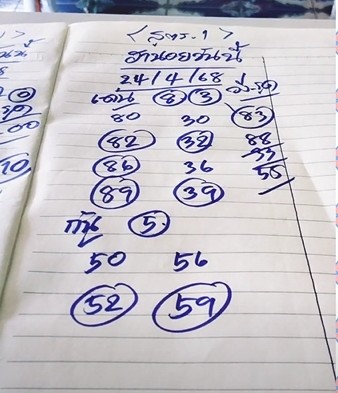 <สูตร.1>
ฮานอยวันนี้
24/4/68
เด่น 8 3
80 30 83
82 32 88
86 36 33
89 39 55
กัน 5
50 56
52 59